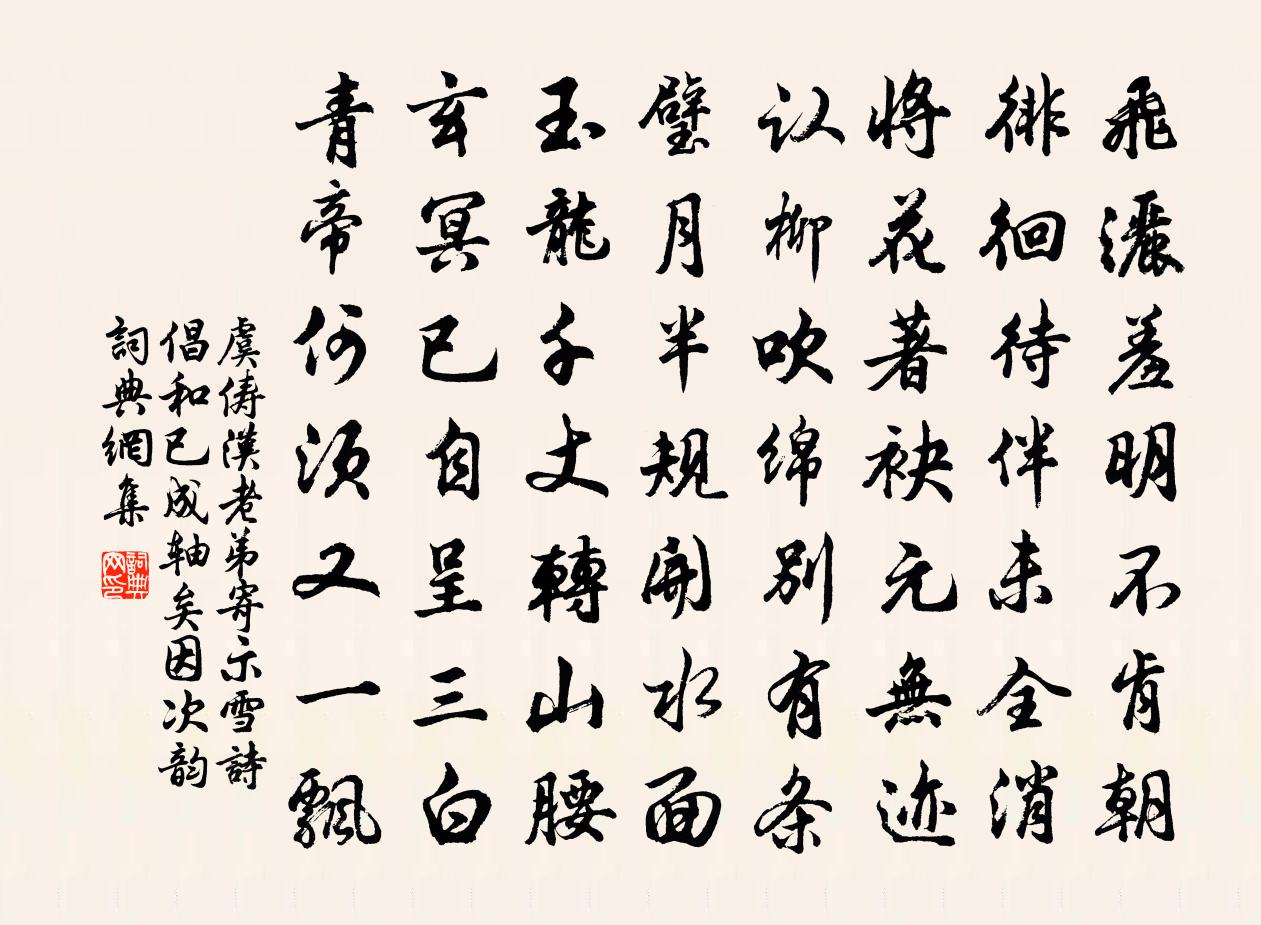 飛灑羞明不肯朝
徘徊待伴未全消
將花著袂元無迹
认柳吹绵别有条
璧月半規開水面
玉龍千丈轉山腰
玄冥已自呈三白
青帝何須又一飄
虞俦漢老弟寄示雪詩
倡和已成轴矣因次韵
詞典網集
詞典网印